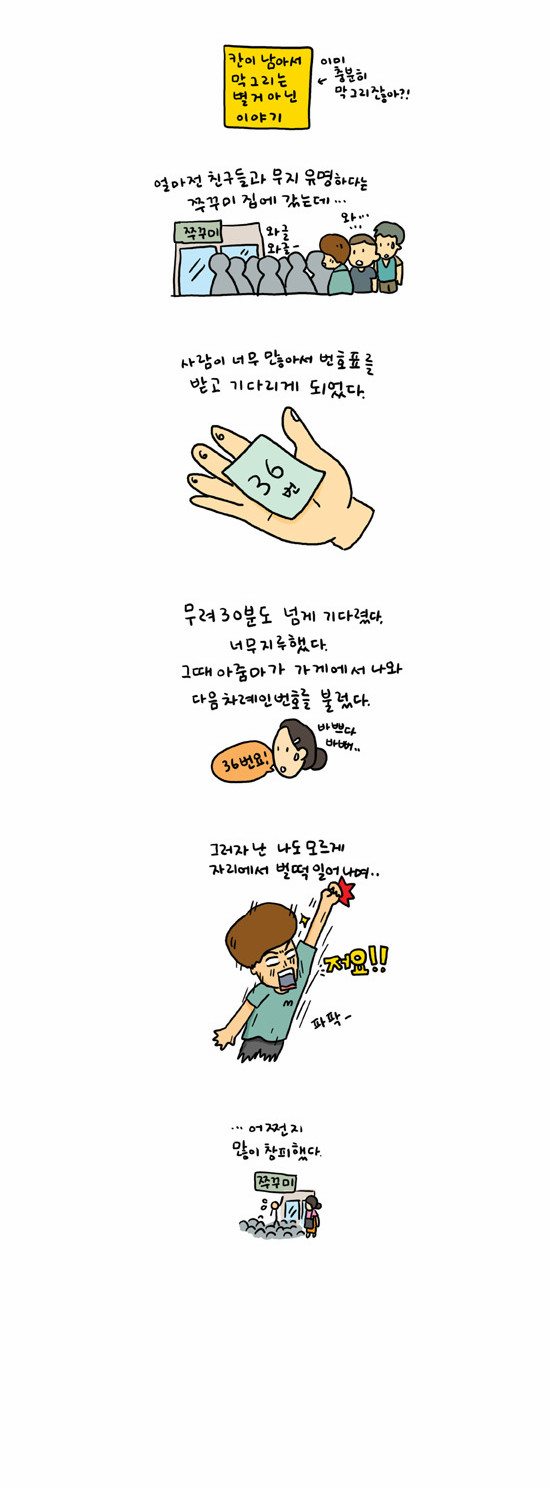 칸이 남아서
막 그리는
별거 아닌
이야기
이미
충분히
막 그리잖아?!
얼마전 친구들과 무지 유명하다는
쭈꾸미 집에 갔는데...
쭈꾸미
와글
와글~
와...
사람이 너무 많아서 번호표를
받고 기다리게 되었다.
36
번
무려 30분도 넘게 기다렸다.
너무 지루했다.
그때 아줌마가 가게에서 나와
다음차례인번호를 불렀다.
36번요!
바쁘다
바빠..
그러자 난 나도 모르게
자리에서 벌떡 일어나며..
저요!!
파팍~
...어쩐지
많이 창피했다.
쭈꾸미